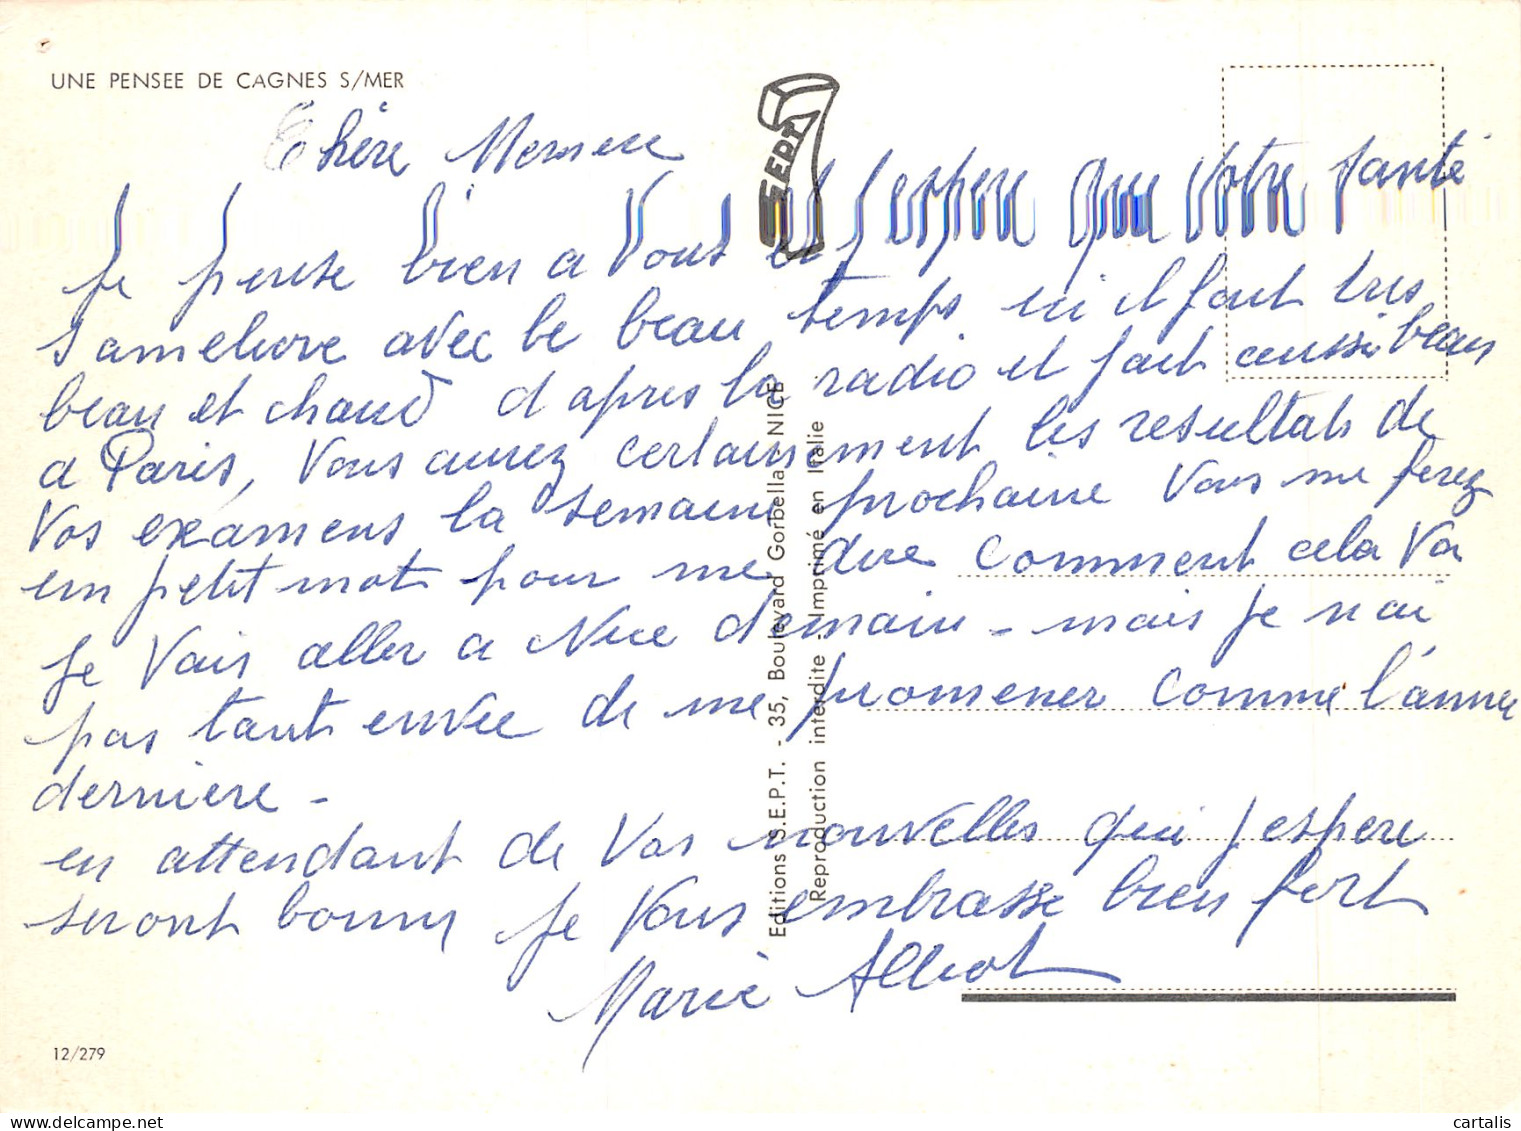 UNE PENSEE DE CAGNES S/MER
SEPT
Chère Memere
Je pense bien a Vous et j'espere que Votre santé
s'ameliore avec le beau temps ici il fait tres
beau et chaud d'apres la radio il fait aussi beau
a Paris, Vous aurez certainement les resultats de
Vos examens la semaine prochaine Vous me ferez
un petit mot pour me dire comment cela Va
Je Vais aller a Nice demain - mais je n'ai
pas tant envie de me promener comme l'année
derniere -
en attendant de Vos nouvelles qui j'espere
seront bonnes je Vous embrasse bien fort
Marie
Editions S.E.P.T. - 35, Boulevard Gorbella - NICE
Reproduction interdite - Imprimé en Italie
12/279
cartalis.com